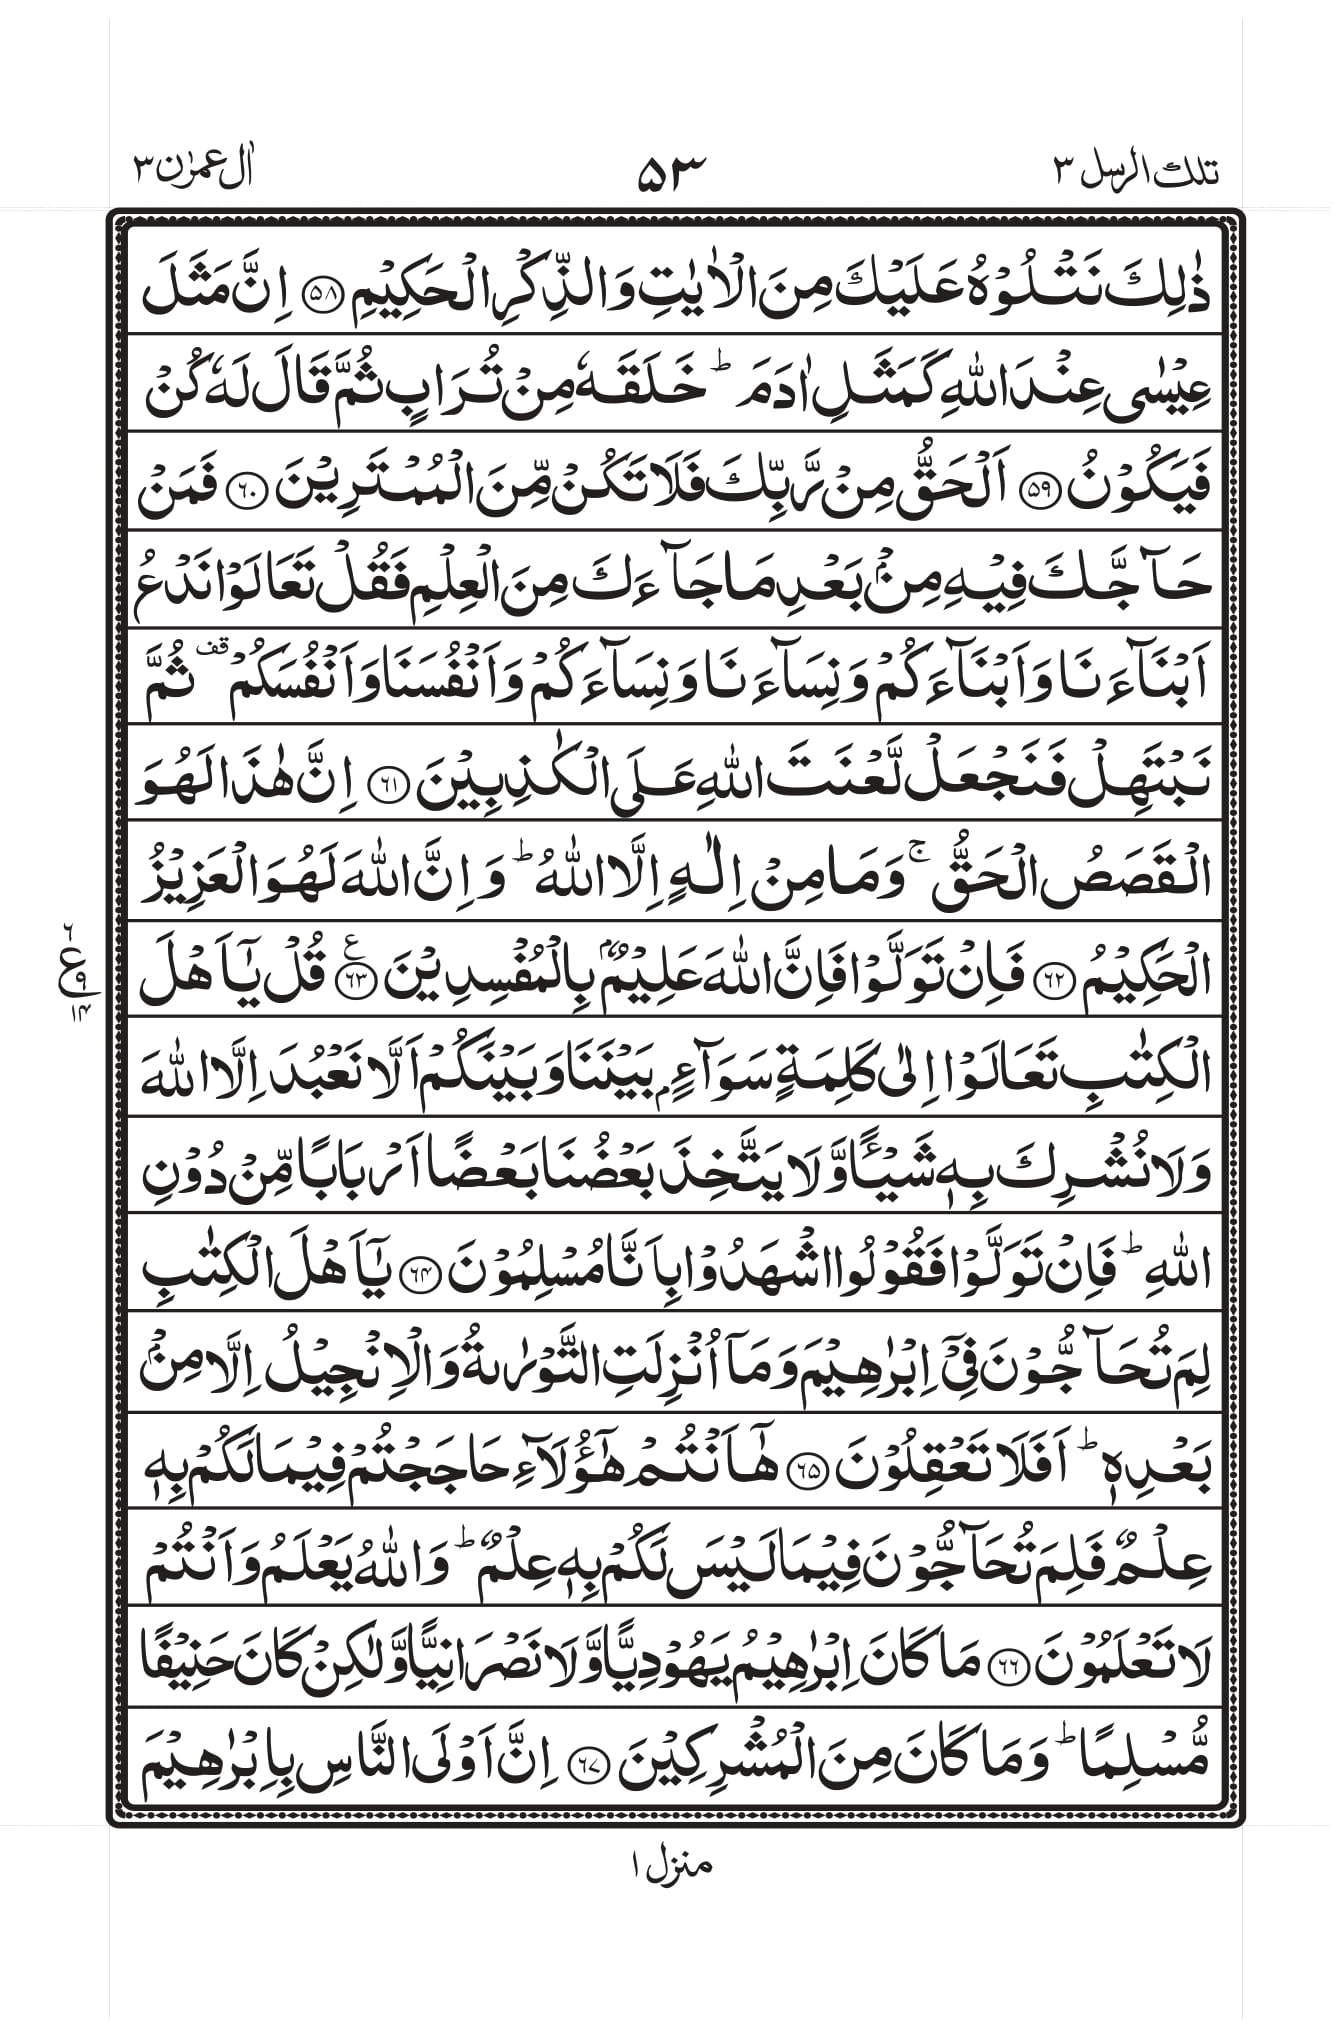 تلك الرسل ٣ ۵۳ اٰل عمرٰن ٣
ذٰلِكَ نَتْلُوْهُ عَلَيْكَ مِنَ الْاٰيٰتِ وَالذِّكْرِ الْحَكِيْمِ ﴿۵۸﴾ اِنَّ مَثَلَ
عِيْسٰى عِنْدَ اللّٰهِ كَمَثَلِ اٰدَمَ ؕ خَلَقَهٗ مِنْ تُرَابٍ ثُمَّ قَالَ لَهٗ كُنْ
فَيَكُوْنُ ﴿۵۹﴾ اَلْحَقُّ مِنْ رَّبِّكَ فَلَا تَكُنْ مِّنَ الْمُمْتَرِيْنَ ﴿۶۰﴾ فَمَنْ
حَآجَّكَ فِيْهِ مِنْۢ بَعْدِ مَا جَآءَكَ مِنَ الْعِلْمِ فَقُلْ تَعَالَوْا نَدْعُ
اَبْنَآءَنَا وَاَبْنَآءَكُمْ وَنِسَآءَنَا وَنِسَآءَكُمْ وَاَنْفُسَنَا وَاَنْفُسَكُمْ قف ثُمَّ
نَبْتَهِلْ فَنَجْعَلْ لَّعْنَتَ اللّٰهِ عَلَى الْكٰذِبِيْنَ ﴿۶۱﴾ اِنَّ هٰذَا لَهُوَ
الْقَصَصُ الْحَقُّ ۚ وَمَا مِنْ اِلٰهٍ اِلَّا اللّٰهُ ؕ وَاِنَّ اللّٰهَ لَهُوَ الْعَزِيْزُ
الْحَكِيْمُ ﴿۶۲﴾ فَاِنْ تَوَلَّوْا فَاِنَّ اللّٰهَ عَلِيْمٌۢ بِالْمُفْسِدِيْنَ ﴿۶۳﴾ ع قُلْ يٰۤاَهْلَ
۶ ع ۹ ۱۴
الْكِتٰبِ تَعَالَوْا اِلٰى كَلِمَةٍ سَوَآءٍۭ بَيْنَنَا وَبَيْنَكُمْ اَلَّا نَعْبُدَ اِلَّا اللّٰهَ
وَلَا نُشْرِكَ بِهٖ شَيْـًٔا وَّلَا يَتَّخِذَ بَعْضُنَا بَعْضًا اَرْبَابًا مِّنْ دُوْنِ
اللّٰهِ ؕ فَاِنْ تَوَلَّوْا فَقُوْلُوا اشْهَدُوْا بِاَنَّا مُسْلِمُوْنَ ﴿۶۴﴾ يٰۤاَهْلَ الْكِتٰبِ
لِمَ تُحَآجُّوْنَ فِيْۤ اِبْرٰهِيْمَ وَمَاۤ اُنْزِلَتِ التَّوْرٰىةُ وَالْاِنْجِيْلُ اِلَّا مِنْۢ
بَعْدِهٖ ؕ اَفَلَا تَعْقِلُوْنَ ﴿۶۵﴾ هٰۤاَنْتُمْ هٰۤؤُلَآءِ حَاجَجْتُمْ فِيْمَا لَكُمْ بِهٖ
عِلْمٌ فَلِمَ تُحَآجُّوْنَ فِيْمَا لَيْسَ لَكُمْ بِهٖ عِلْمٌ ؕ وَاللّٰهُ يَعْلَمُ وَاَنْتُمْ
لَا تَعْلَمُوْنَ ﴿۶۶﴾ مَا كَانَ اِبْرٰهِيْمُ يَهُوْدِيًّا وَّلَا نَصْرَانِيًّا وَّلٰكِنْ كَانَ حَنِيْفًا
مُّسْلِمًا ؕ وَمَا كَانَ مِنَ الْمُشْرِكِيْنَ ﴿۶۷﴾ اِنَّ اَوْلَى النَّاسِ بِاِبْرٰهِيْمَ
منزل ۱